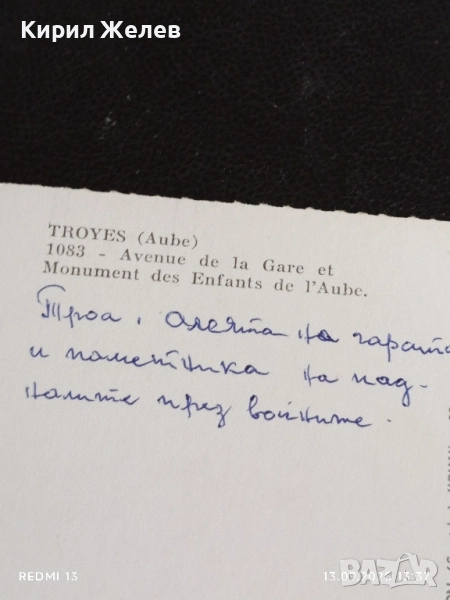 Кирил Желев
TROYES (Aube)
1083 - Avenue de la Gare et
Monument des Enfants de l'Aube.
Троа, алеята на гарата
и паметника на пад-
налите през войните.
REDMI 13
BAZAR